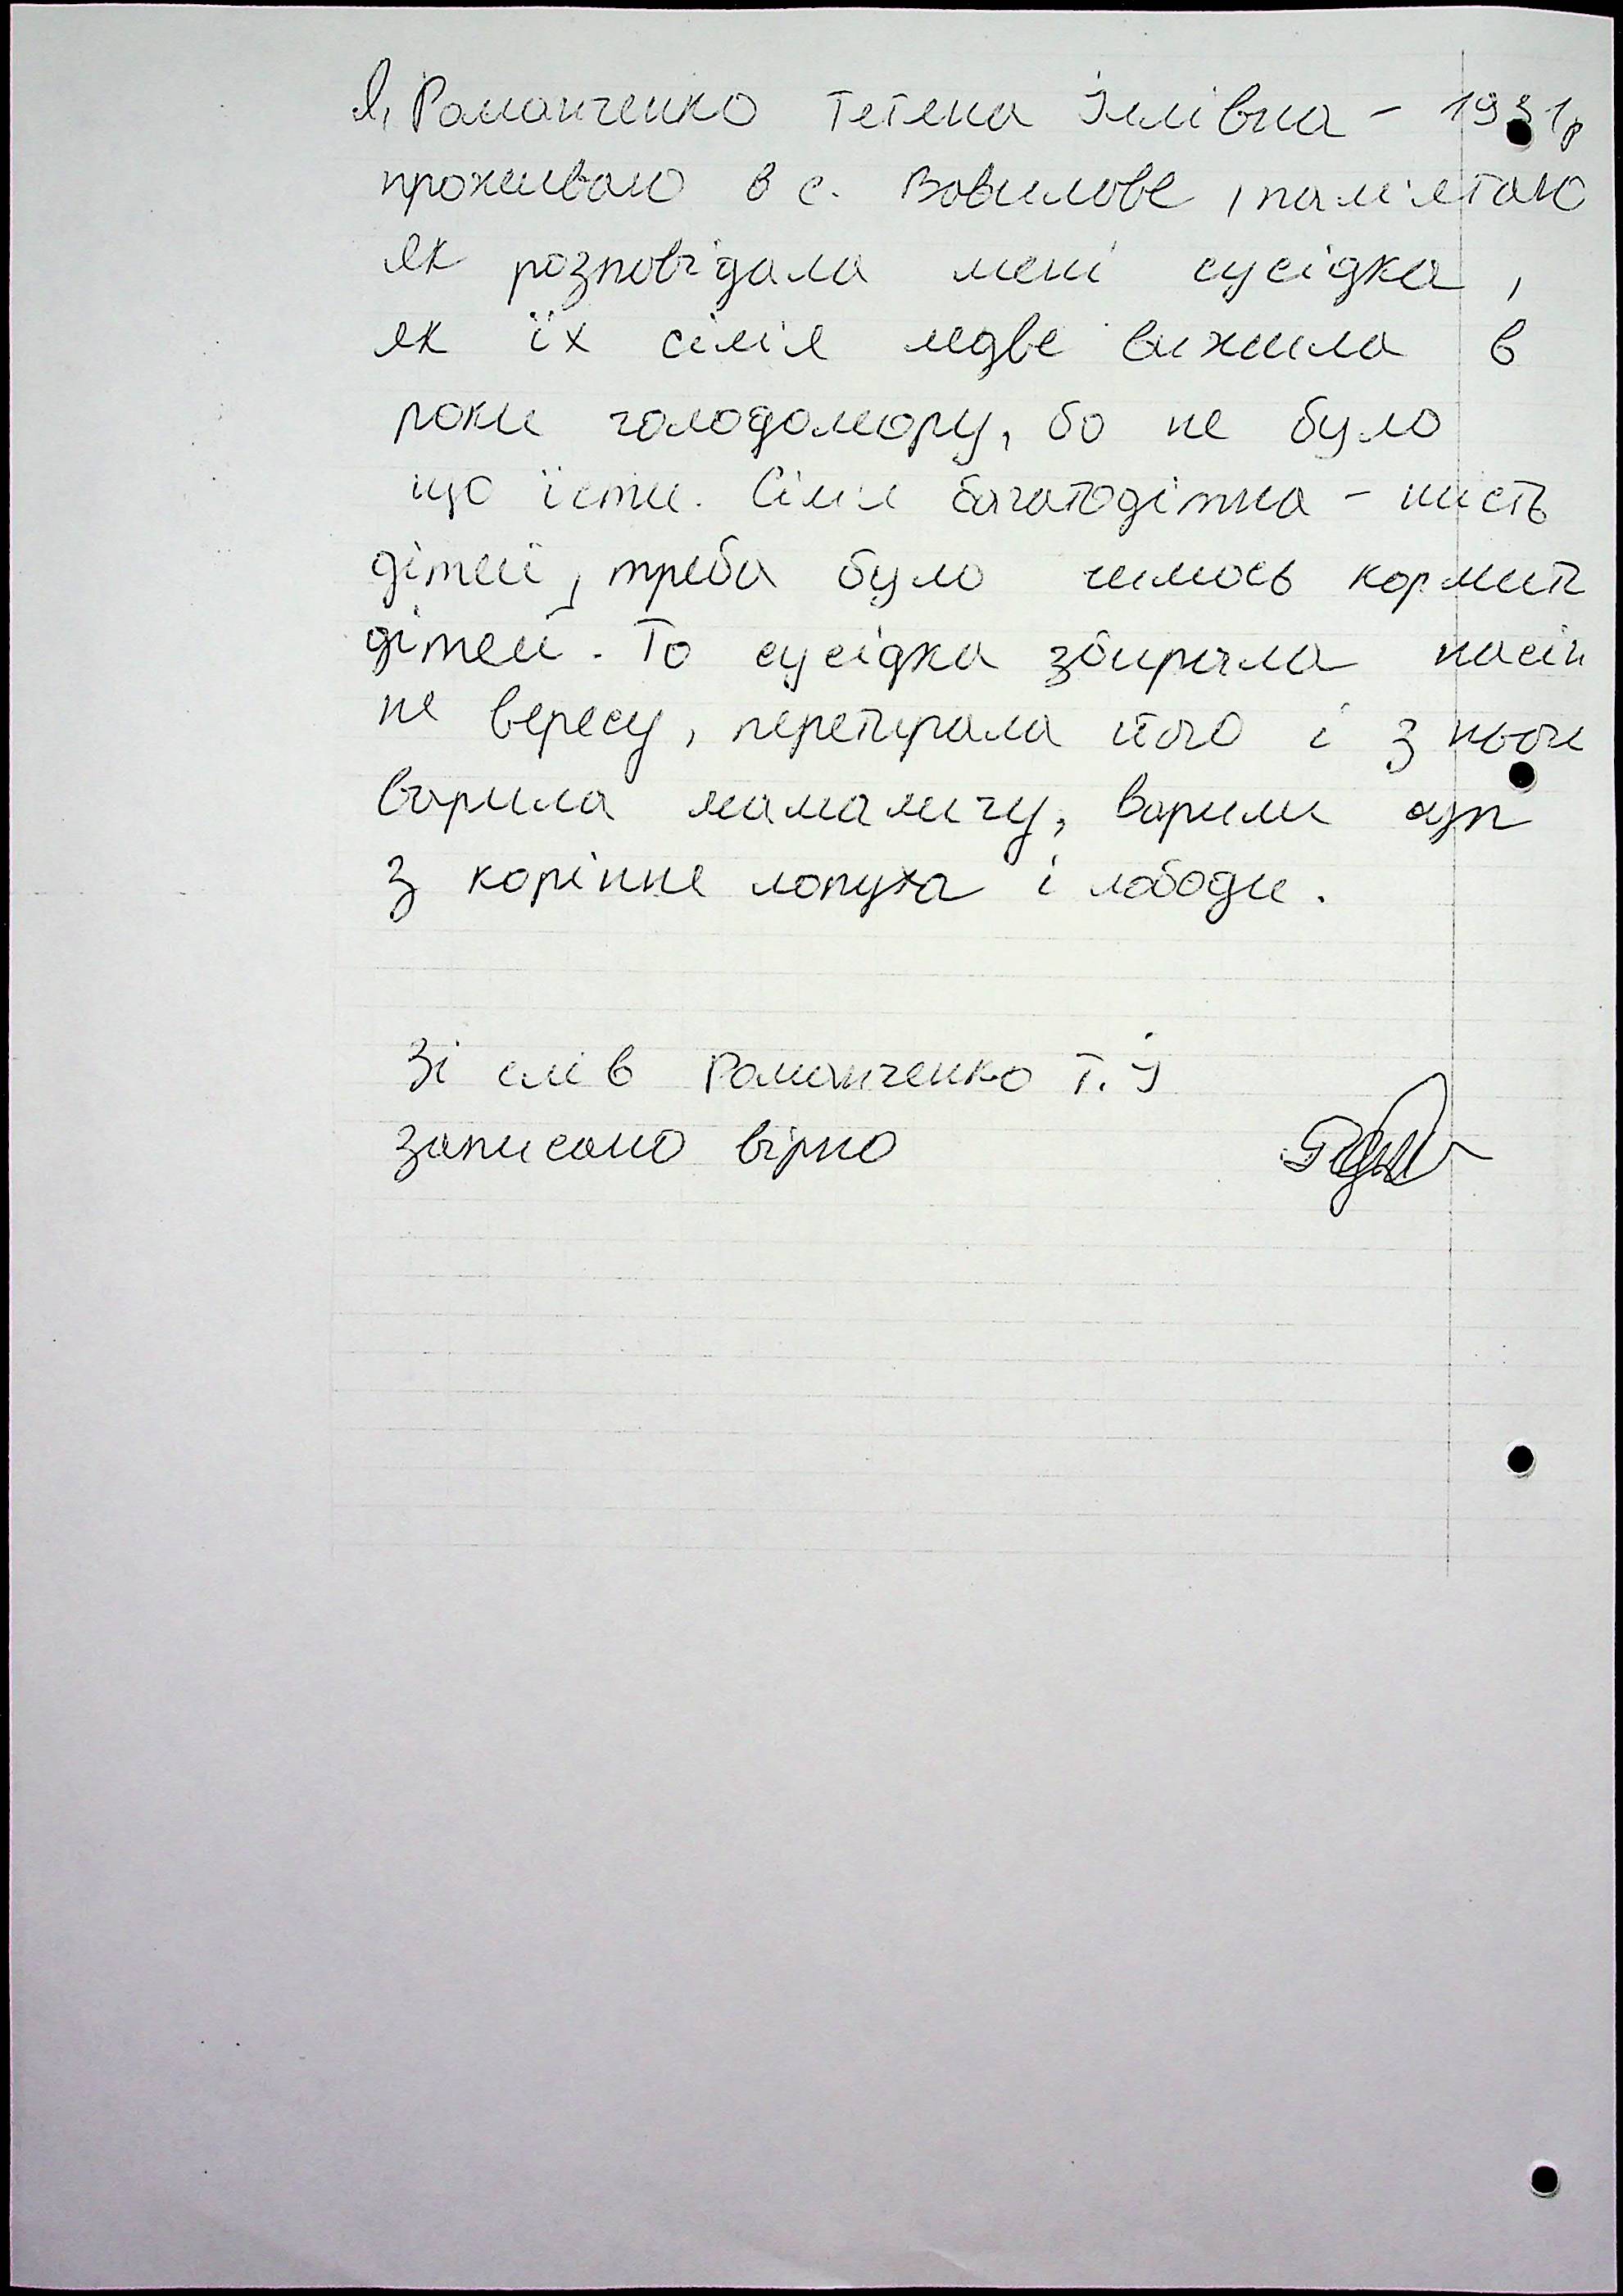 Я, Романченко Тетяна Іллівна - 1931р
проживаю в с. Вовилове, пам'ятаю
як розповідала мені сусідка,
як їх сім'я ледве вижила в
роки голодомору, бо не було
що їсти. Сім'я багатодітна - шість
дітей, треба було чимось кормити
дітей. То сусідка збирала насін
ня вересу, перетирала його і з нього
варила мамалигу, варили суп
з коріння лопуха і лободи.
Зі слів Романченко Т. І
записано вірно